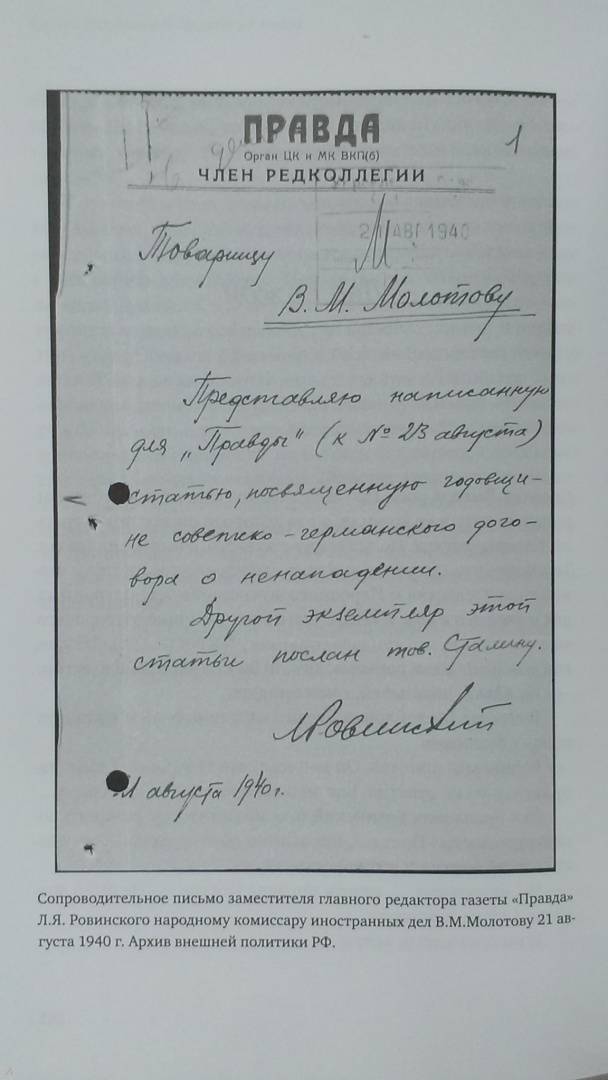 ПРАВДА
Орган ЦК и МК ВКП(б)
1
ЧЛЕН РЕДКОЛЛЕГИИ
АВГ 1940
Товарищу
В. М. Молотову
Представляю написанную
для „Правды" (к № 23 августа)
статью, посвященную годовщи-
не советско-германского дого-
вора о ненападении.
Другой экземпляр этой
статьи послан тов. Сталину.
Л Ровинский
августа 1940 г.
Сопроводительное письмо заместителя главного редактора газеты «Правда»
Л.Я. Ровинского народному комиссару иностранных дел В.М.Молотову 21 ав-
густа 1940 г. Архив внешней политики РФ.